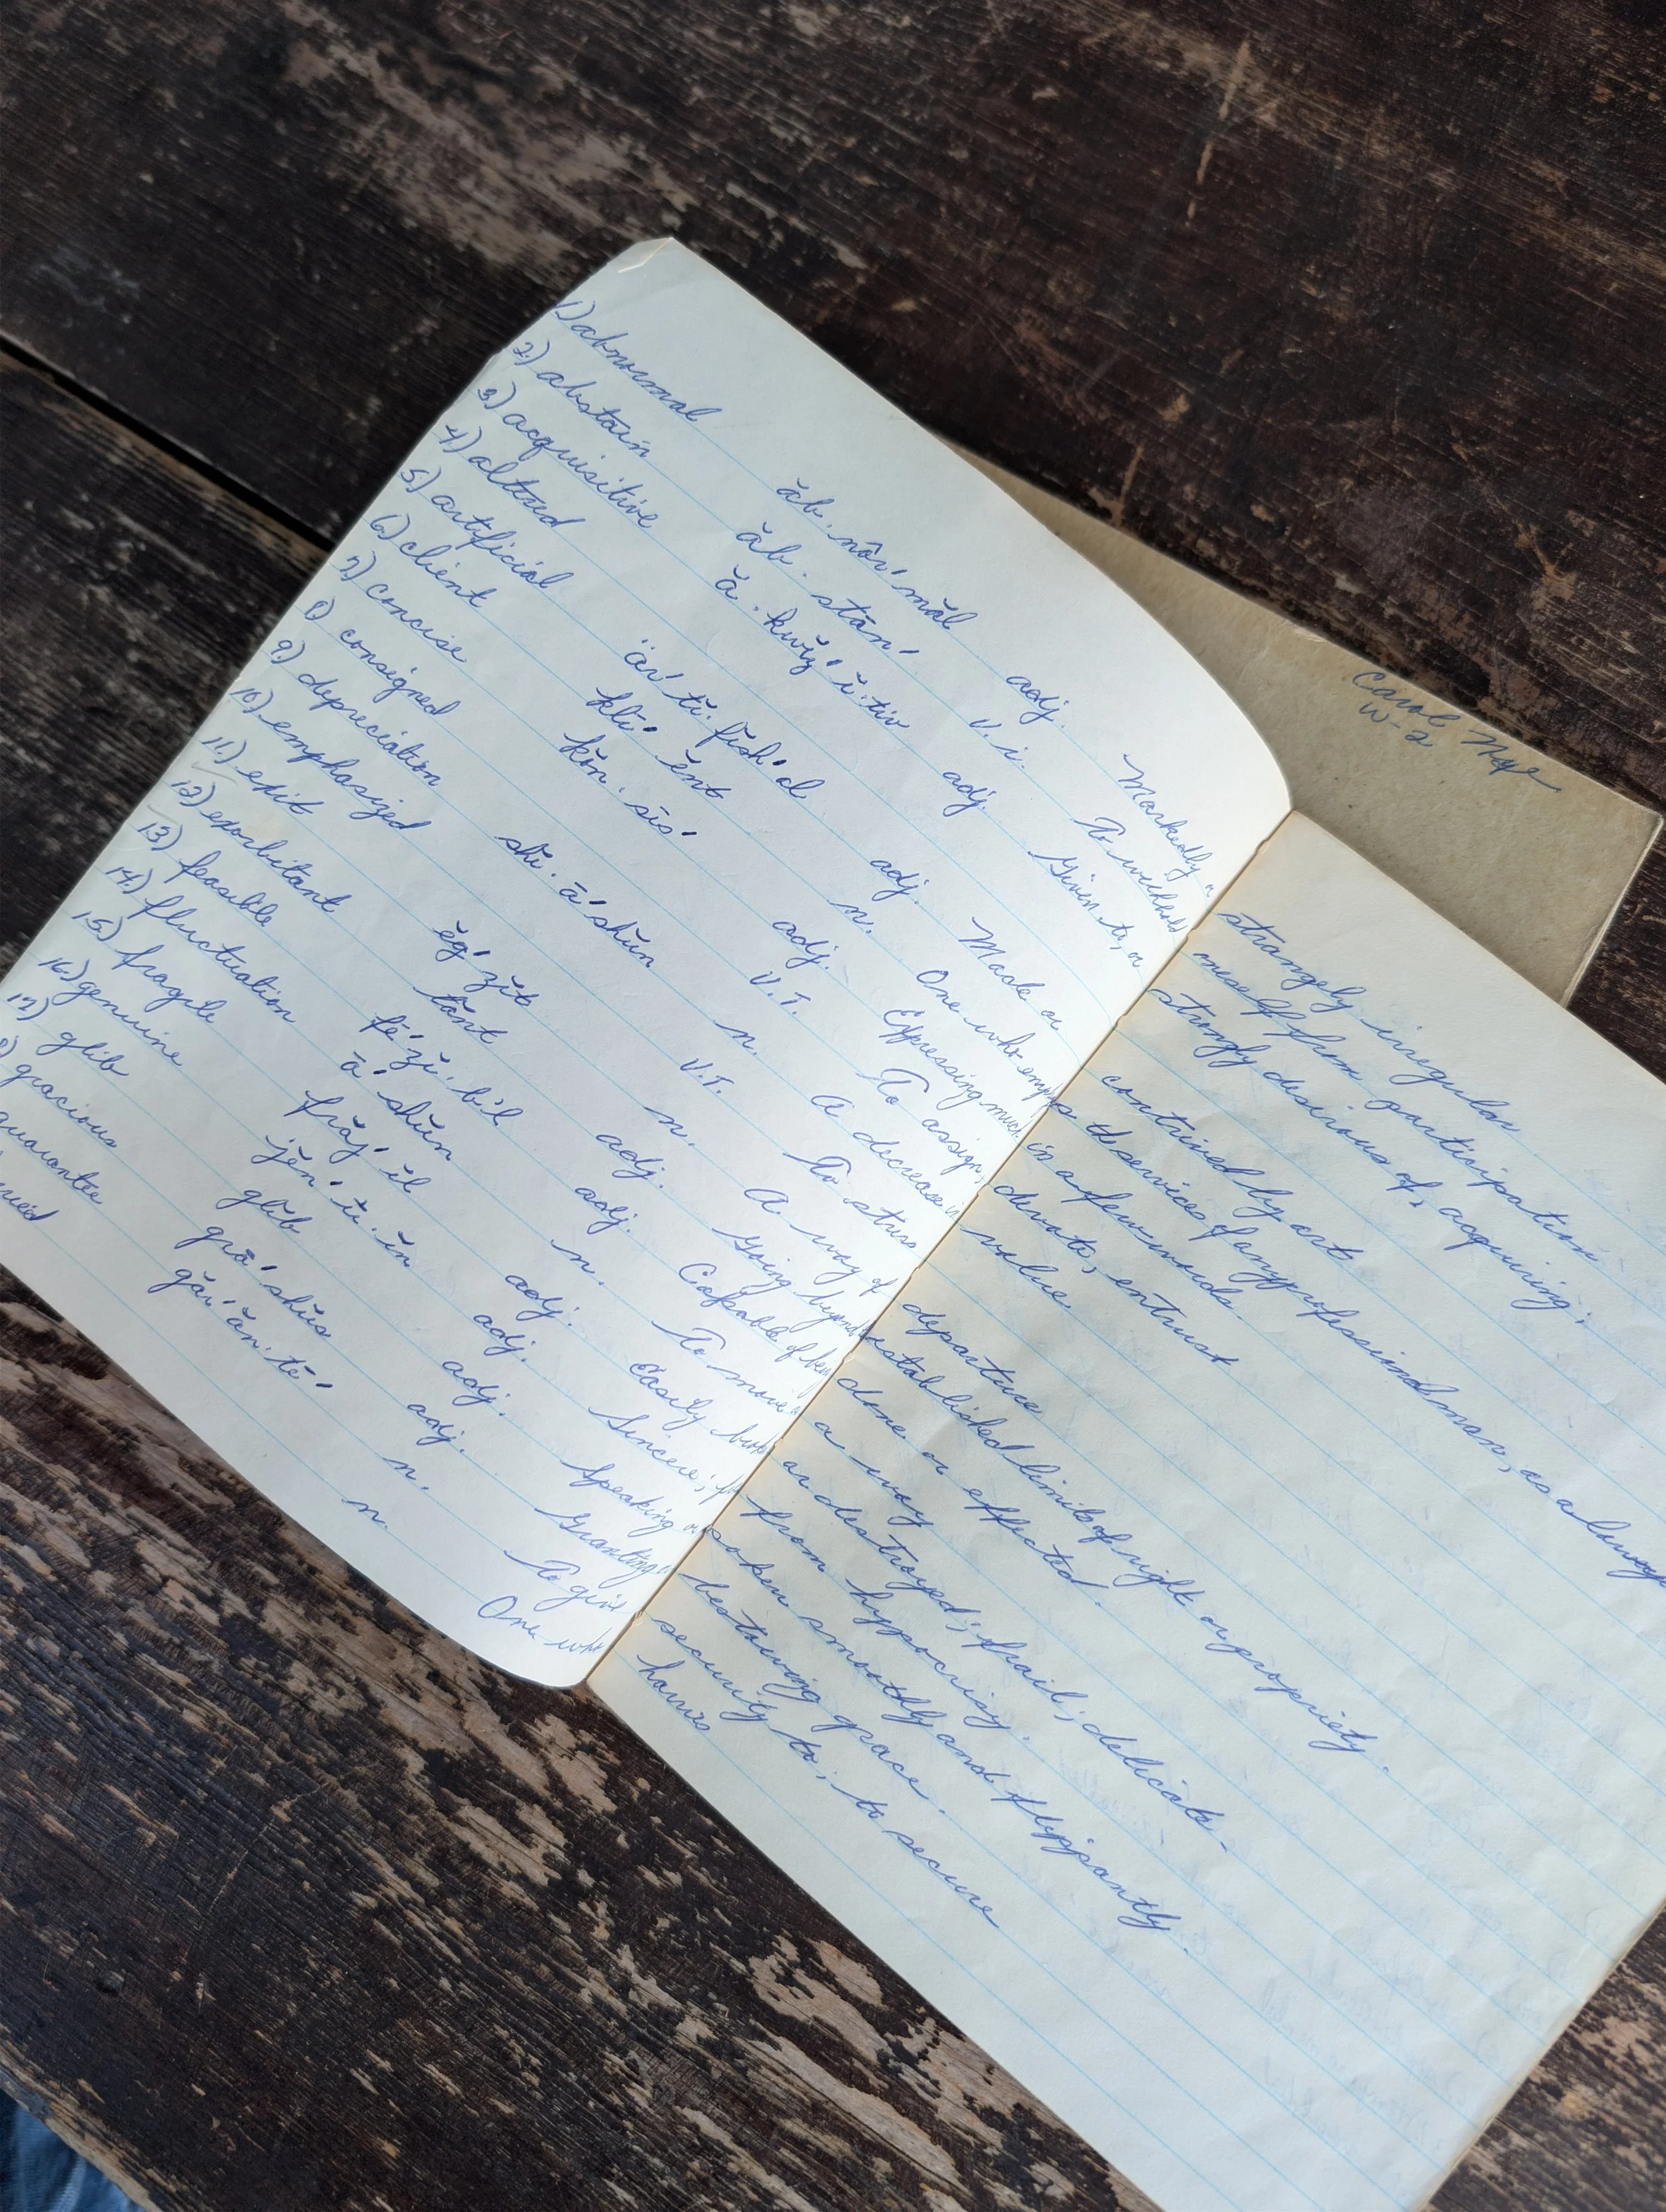 1) abnormal ăb. nôr′ măl adj. Markedly strangely irregular
2.) abstain ăb. stān′ v.i. To withhold oneself from participation
3) acquisitive ă. kwĭz′ ĭ. tiv adj. Given to, or strongly desirous of, acquiring;
4) altered
5) artificial är′ tĭ. fish′ al adj. Made or contrived by art
6) client klī′ ĕnt n. One who employs the services of any professional man, as a lawyer
7) concise kŏn. sīs′ adj. Expressing much in a few words.
8) consigned V.T. To assign, devote, entrust
9) depreciation shĭ. ā′ shŭn n. A decrease in value
10) emphasized V.T. To stress
11) exit ĕg′ zĭt n. A way of departure
12) exorbitant tănt adj. Going beyond established limits of right or propriety.
13) feasible fē′ zĭ. b'l adj. Capable of being done or effected.
14) fluctuation ā′ shŭn n. To move in a wavy
15) fragile frăj′ ĭl adj. Easily broken or destroyed; frail; delicate.
16) genuine jĕn′ ŭ. ĭn adj. Sincere; from hypocrisy.
17) glib glĭb adj. Speaking or spoken smoothly and flippantly.
gracious grā′ shŭs adj. Granting bestowing grace.
guarantee găr′ ăn. tē′ n. To give security to; to secure
n. One who
Carol
W-2